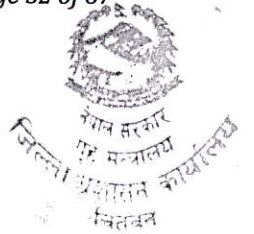 ge 52 of 67
नेपाल सरकार
गृह मन्त्रालय
जिल्ला प्रशासन कार्यालय
चितवन